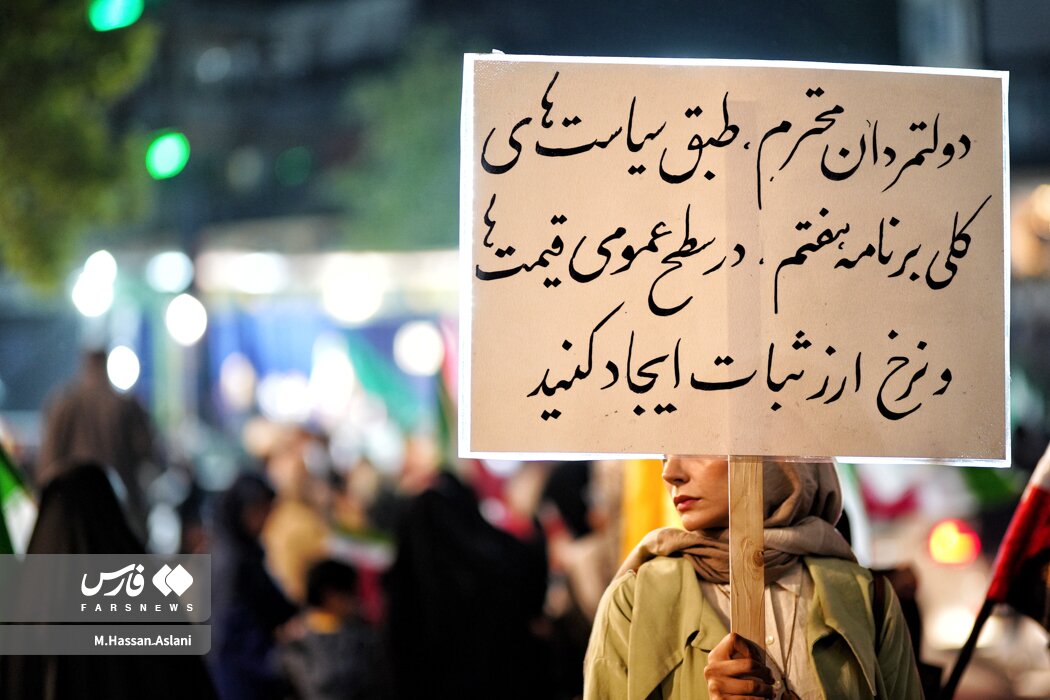 دولتمردان محترم، طبق سیاست‌های
کلی برنامه هفتم، در سطح عمومی قیمت‌ها
و نرخ ارز ثبات ایجاد کنید
فارس
FARSNEWS
M.Hassan.Aslani